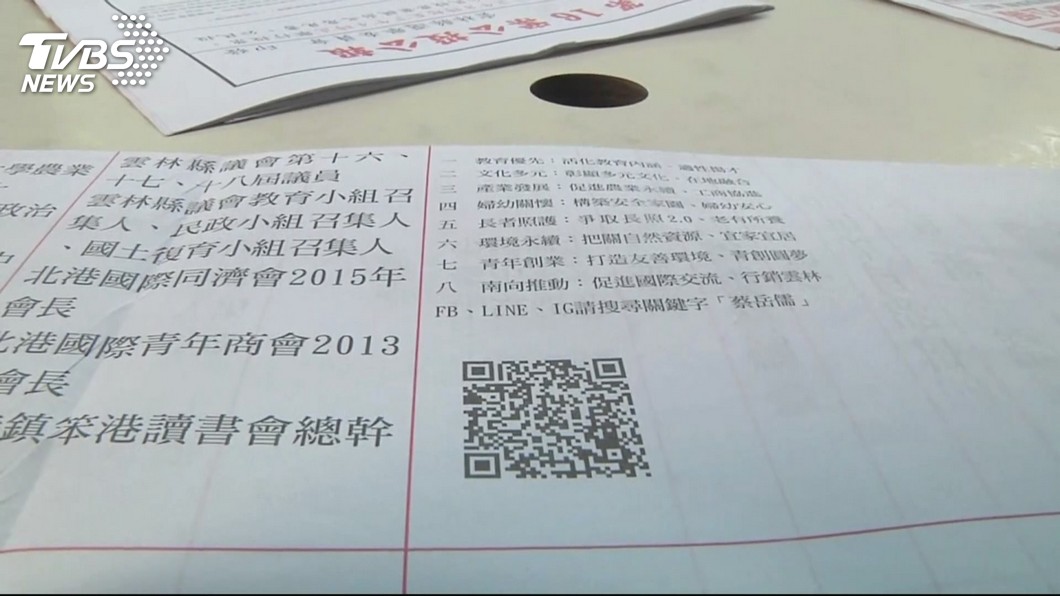 TVBS
NEWS
第16屆公報
學農業
政治
雲林縣議會第十六、
十七、十八屆議員
雲林縣議會教育小組召
集人、民政小組召集人
、國土復育小組召集人
北港國際同濟會2015年
會長
北港國際青年商會2013
會長
鎮笨港讀書會總幹
一 教育優先：活化教育內涵、適性揚才
二 文化多元：彰顯多元文化、在地融合
三 產業發展：促進農業永續、工商協進
四 婦幼關懷：構築安全家園、婦幼安心
五 長者照護：爭取長照2.0、老有所養
六 環境永續：把關自然資源、宜家宜居
七 青年創業：打造友善環境、青創圓夢
八 南向推動：促進國際交流、行銷雲林
FB、LINE、IG請搜尋關鍵字「蔡岳儒」